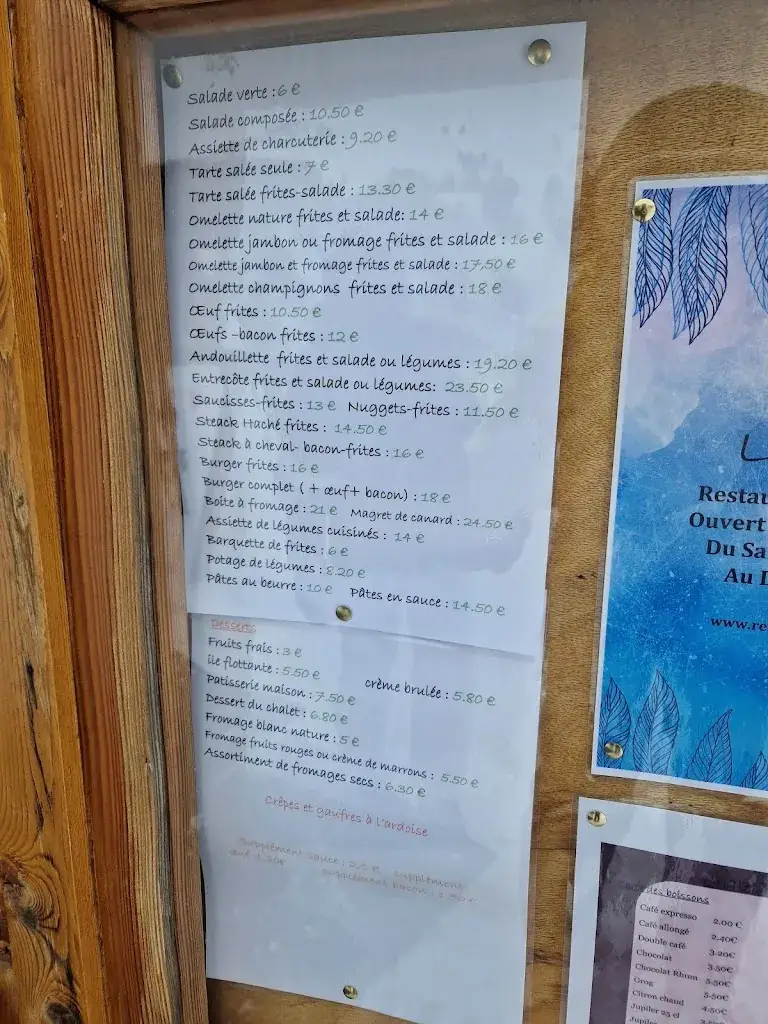 Salade verte : 6 €
Salade composée : 10.50 €
Assiette de charcuterie : 9.20 €
Tarte salée seule : 7 €
Tarte salée frites-salade : 13.30 €
Omelette nature frites et salade: 14 €
Omelette jambon ou fromage frites et salade : 16 €
Omelette jambon et fromage frites et salade : 17,50 €
Omelette champignons frites et salade : 18 €
Œuf frites : 10.50 €
Œufs -bacon frites : 12 €
Andouillette frites et salade ou légumes : 19.20 €
Entrecôte frites et salade ou légumes: 23.50 €
Saucisses-frites : 13 € Nuggets-frites : 11.50 €
Steack Haché frites : 14.50 €
Steack à cheval- bacon-frites : 16 €
Burger frites : 16 €
Burger complet ( + œuf+ bacon) : 18 €
Boite à fromage : 21 € Magret de canard : 24.50 €
Assiette de légumes cuisinés : 14 €
Barquette de frites : 6 €
Potage de légumes : 8.20 €
Pâtes au beurre : 10 € Pâtes en sauce : 14.50 €
Desserts
Fruits frais : 3 €
ile flottante : 5.50 € crème brulée : 5.80 €
Patisserie maison : 7.50 €
Dessert du chalet : 6.80 €
Fromage blanc nature : 5 €
Fromage fruits rouges ou crème de marrons : 5.50 €
Assortiment de fromages secs : 6.30 €
Crêpes et gaufres à l'ardoise
Supplément sauce : supplément
œuf supplément bacon :
Restau
Ouvert
Du Sa
Au
www.re
des boissons
Café expresso 2.00 €
Café allongé 2.40€
Double café 3.20€
Chocolat 3.50€
Chocolat Rhum 5.50€
Grog 5.50€
Citron chaud 4.50€
Jupiler 25 cl
Jupiler